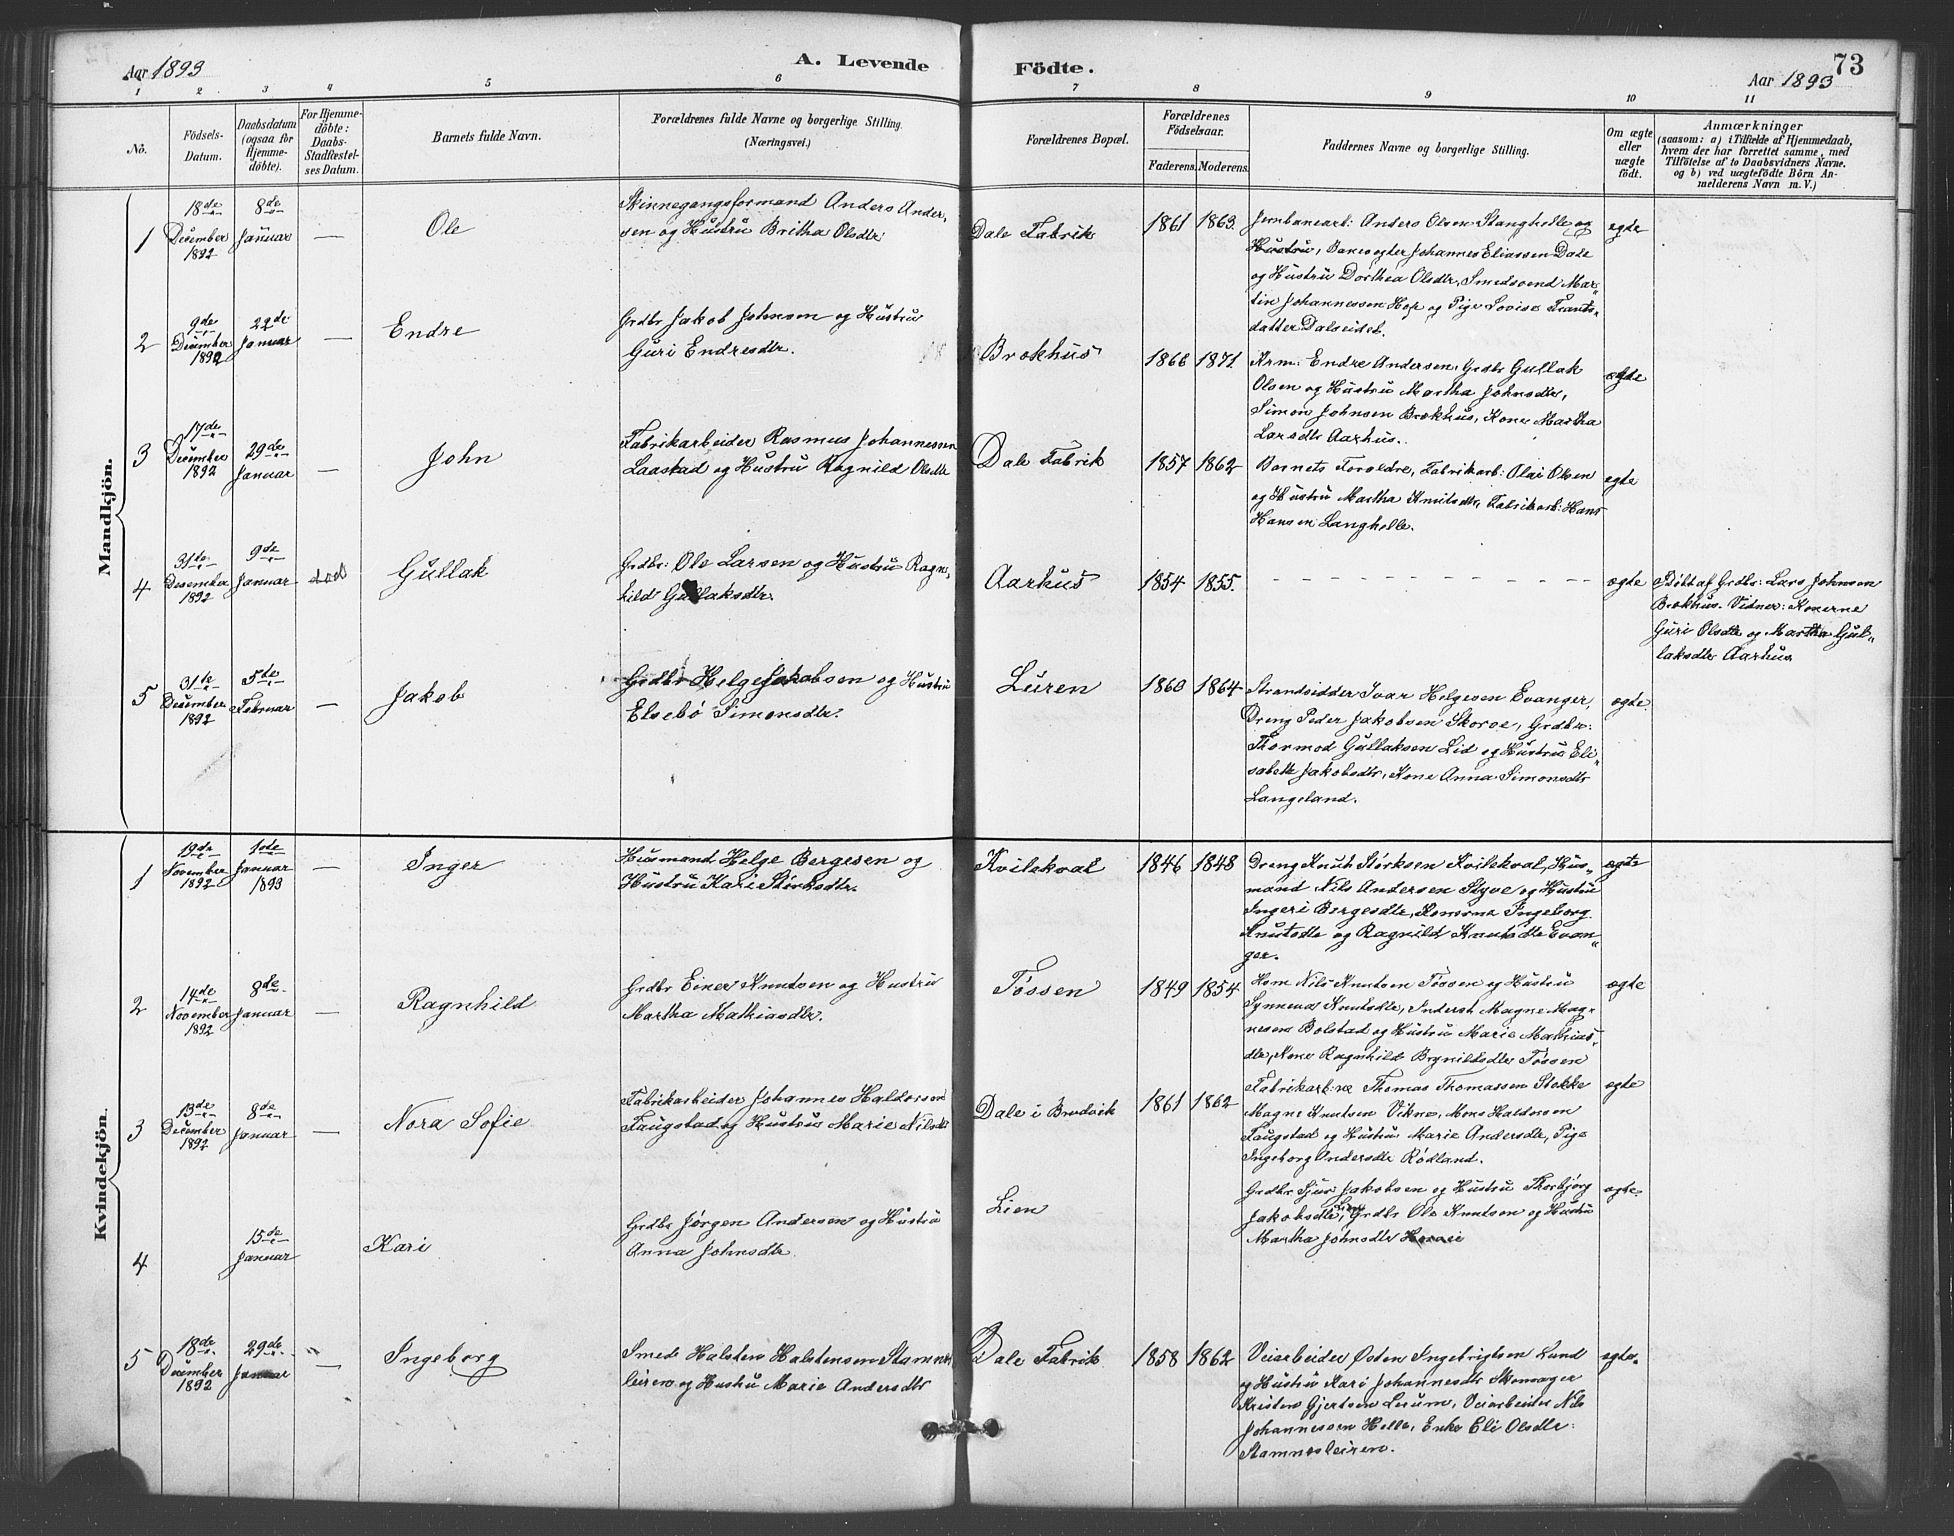 Aar 1893
A. Levende
Födte.
73
Aar 1893
1 2 3 4 5 6 7 8 9 10 11
No.
Födsels-
Datum.
Daabsdatum
(ogsaa for
Hjemme-
döbte).
For Hjemme-
döbte:
Daabs-
Stadfæstel-
ses Datum.
Barnets fulde Navn.
Forældrenes fulde Navne og borgerlige Stilling.
(Næringsvei.)
Forældrenes Bopæl.
Forældrenes
Födselsaar.
Faderens. Moderens.
Faddernes Navne og borgerlige Stilling.
Om ægte
eller
uægte
födt.
Anmærkninger
(saasom: a) i Tilfælde af Hjemmedaab,
hvem der har forrettet samme, med
Tilföielse af to Daabsvidners Navne.
og b) ved uægtefödte Börn An-
melderens Navn m. V.)
Mandkjön.
1
18de
December
1892
8de
Januar
—
Ole
Skinnegangsformand Anders Ander-
sen og Hustru Britha Olsdtr
Dale Fabrik
1861 1863.
Jernbanearb: Anders Olsen Stanghelle og
Hustru, Banevogter Johannes Eliassen Dale
og Hustru Dorthea Olsdtr, Smedsvend Mar-
tin Johannessen Hop og Pige Lovise Frants-
datter Dalseidet.
egte
2
9de
December
1892
22de
Januar
—
Endre
Grdbr Jakob Johnsen og Hustru
Guri Endresdtr.
Brekhus
1866 1871.
Krm: Endre Andersen, Grdbr Gullak
Olsen og Hustru Martha Johnsdtr,
Simon Johnsen Brekhus, Kone Martha
Larsdtr Aarhus.
egte
3
17de
December
1892
29de
Januar
—
John
Fabrikarbeider Rasmus Johannessen
Laastad og Hustru Ragnild Olsdtr
Dale Fabrik
1857 1862
Barnets Foreldre, Fabrikarb: Olai Olsen
og Hustru Martha Knutsdtr, Fabrikarb: Hans
Hansen Langhelle.
egte
4
31te
Desember
1892
9de
Januar
død
Gullak
Grdbr: Ole Larsen og Hustru Ragn-
hild Gullaksdtr.
Aarhus
1854 1855.
egte
Døbt af Grdbr: Lars Johnsen
Brekhus. Vidner: Konerne
Guri Olsdtr og Martha Gul-
laksdtr Aarhus
5
31te
December
1892
5te
Februar
—
Jakob
Grdbr Helge Jakobsen og Hustru
Elsebø Simonsdtr.
Luren
1860 1864
Strandsidder Ivar Helgesen Evanger,
Dreng Peder Jakobsen Skorve, Grdbr:
Thormod Gullaksen Lid og Hustru Eli-
sabeth Jakobsdtr, Kone Anna Simonsdtr
Langeland.
egte.
Kvindekjön.
1
19de
November
1892
1ode
Januar
1893
—
Inger
Husmand Helge Bergesen og
Hustru Kari Størksdtr.
Kvilekval
1846 1848
Dreng Knut Størksen Kvilekval, Hus-
mand Nils Andersen Styve og Hustru
Ingeri Bergesdtr, Konerne Ingeborg
Knutsdtr og Ragnild Knutsdtr Evan-
ger.
egte
2
14de
November
1892
8de
Januar
—
Ragnhild
Grdbr Einer Knutsen og Hustru
Martha Mathiasdtr.
Tøssen
1849 1854
Hsm Nils Knutsen Tøssen og Hustru
Synneva Knutsdtr, Inderst Magne Mag-
nesen Bolstad og Hustru Marie Mathias-
dtr, Kone Ragnhild Brynildsdtr Tøssen
egte
3
13de
December
1892
8de
Januar
—
Nora Sofie
Fabrikarbeider Johannes Haldorsen
Faugstad og Hustru Marie Nilsdtr
Dale i Bruvik
1861 1862
Fabrikarb:ne Thomas Thomassen Stokke
Magne Knutsen Vikne, Mons Haldorsen
Faugstad og Hustru Marie Andersdtr, Pige
Ingeborg Andersdtr Rødland.
egte
4
15de
Januar
Kari
Grdbr Jørgen Andersen og Hustru
Anna Johnsdtr
Lien
Grdbr Sjur Jakobsen og Hustru Thorbjørg
Jakobsdtr, Grdbr Ole Knutsen og Hustru
Martha Johnsdtr
egte
5
18de
December
1892
29de
Januar
—
Ingeborg
Smed Halsten Halstensen Stamnes-
leiren og Hustru Marie Andersdtr
Dale Fabrik
1858 1862
Veiarbeider Østen Ingebrigtsen Lund
og Hustru Kari Johannesdtr Skomager
Kristen Gjertsen Leium, Veiarbeider Nils
Johannessen Helle, Enke Eli Olsdtr
Stamnesleiren.
egte